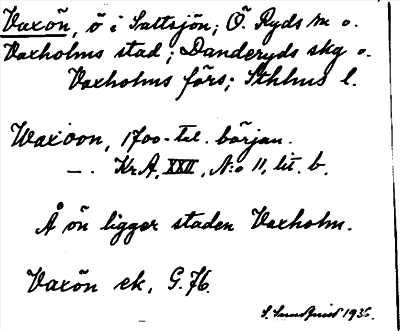 Vaxön, ö i Saltsjön; Ö. Ryds sn o.
Vaxholms stad; Danderyds skg o.
Vaxholms förs; Sthlms l.
Waxöon, 1700-tal. början.
—. Kr A, XXII, N:o 11, lit. b.
Å ön ligger staden Vaxholm.
Vaxön ek, G. 76.
S. Sundqvist 1936.